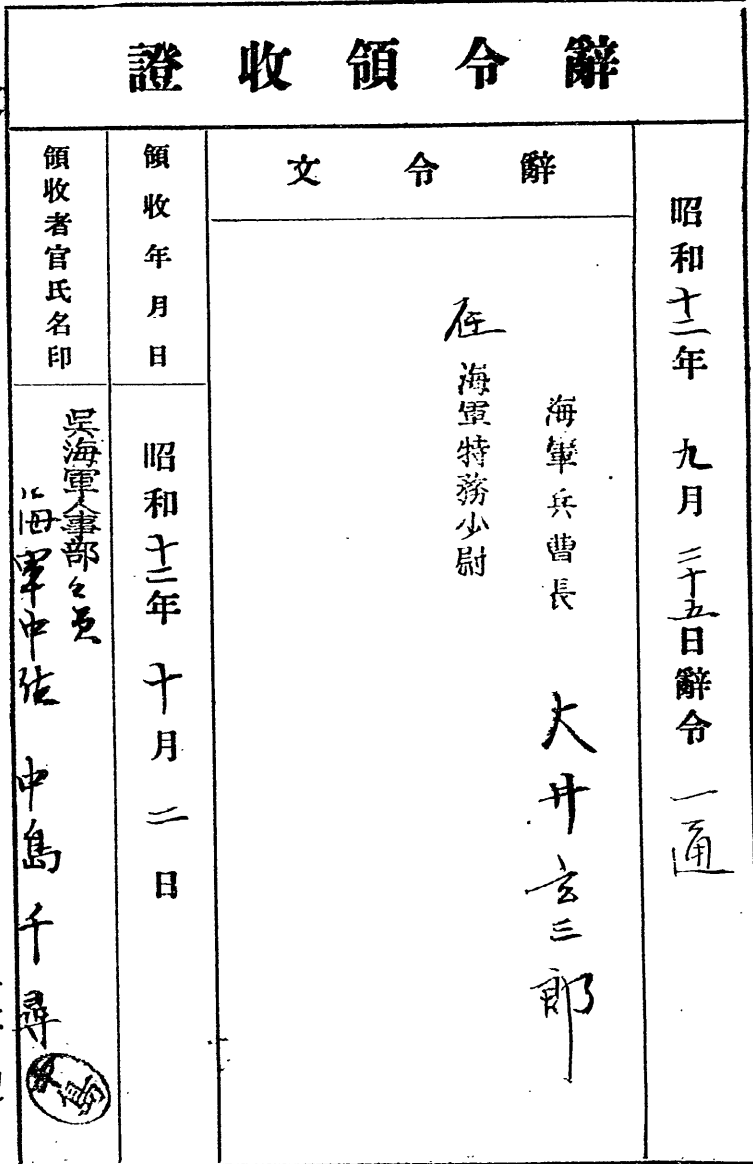 辭令領收證
昭和十二年 九月 二十五日辭令 一通
辭令文
海軍兵曹長 大井玄三郎
任海軍特務少尉
領收年月日
昭和十二年 十月 二日
領收者官氏名印
呉海軍人事部々員
海軍中佐 中島千尋